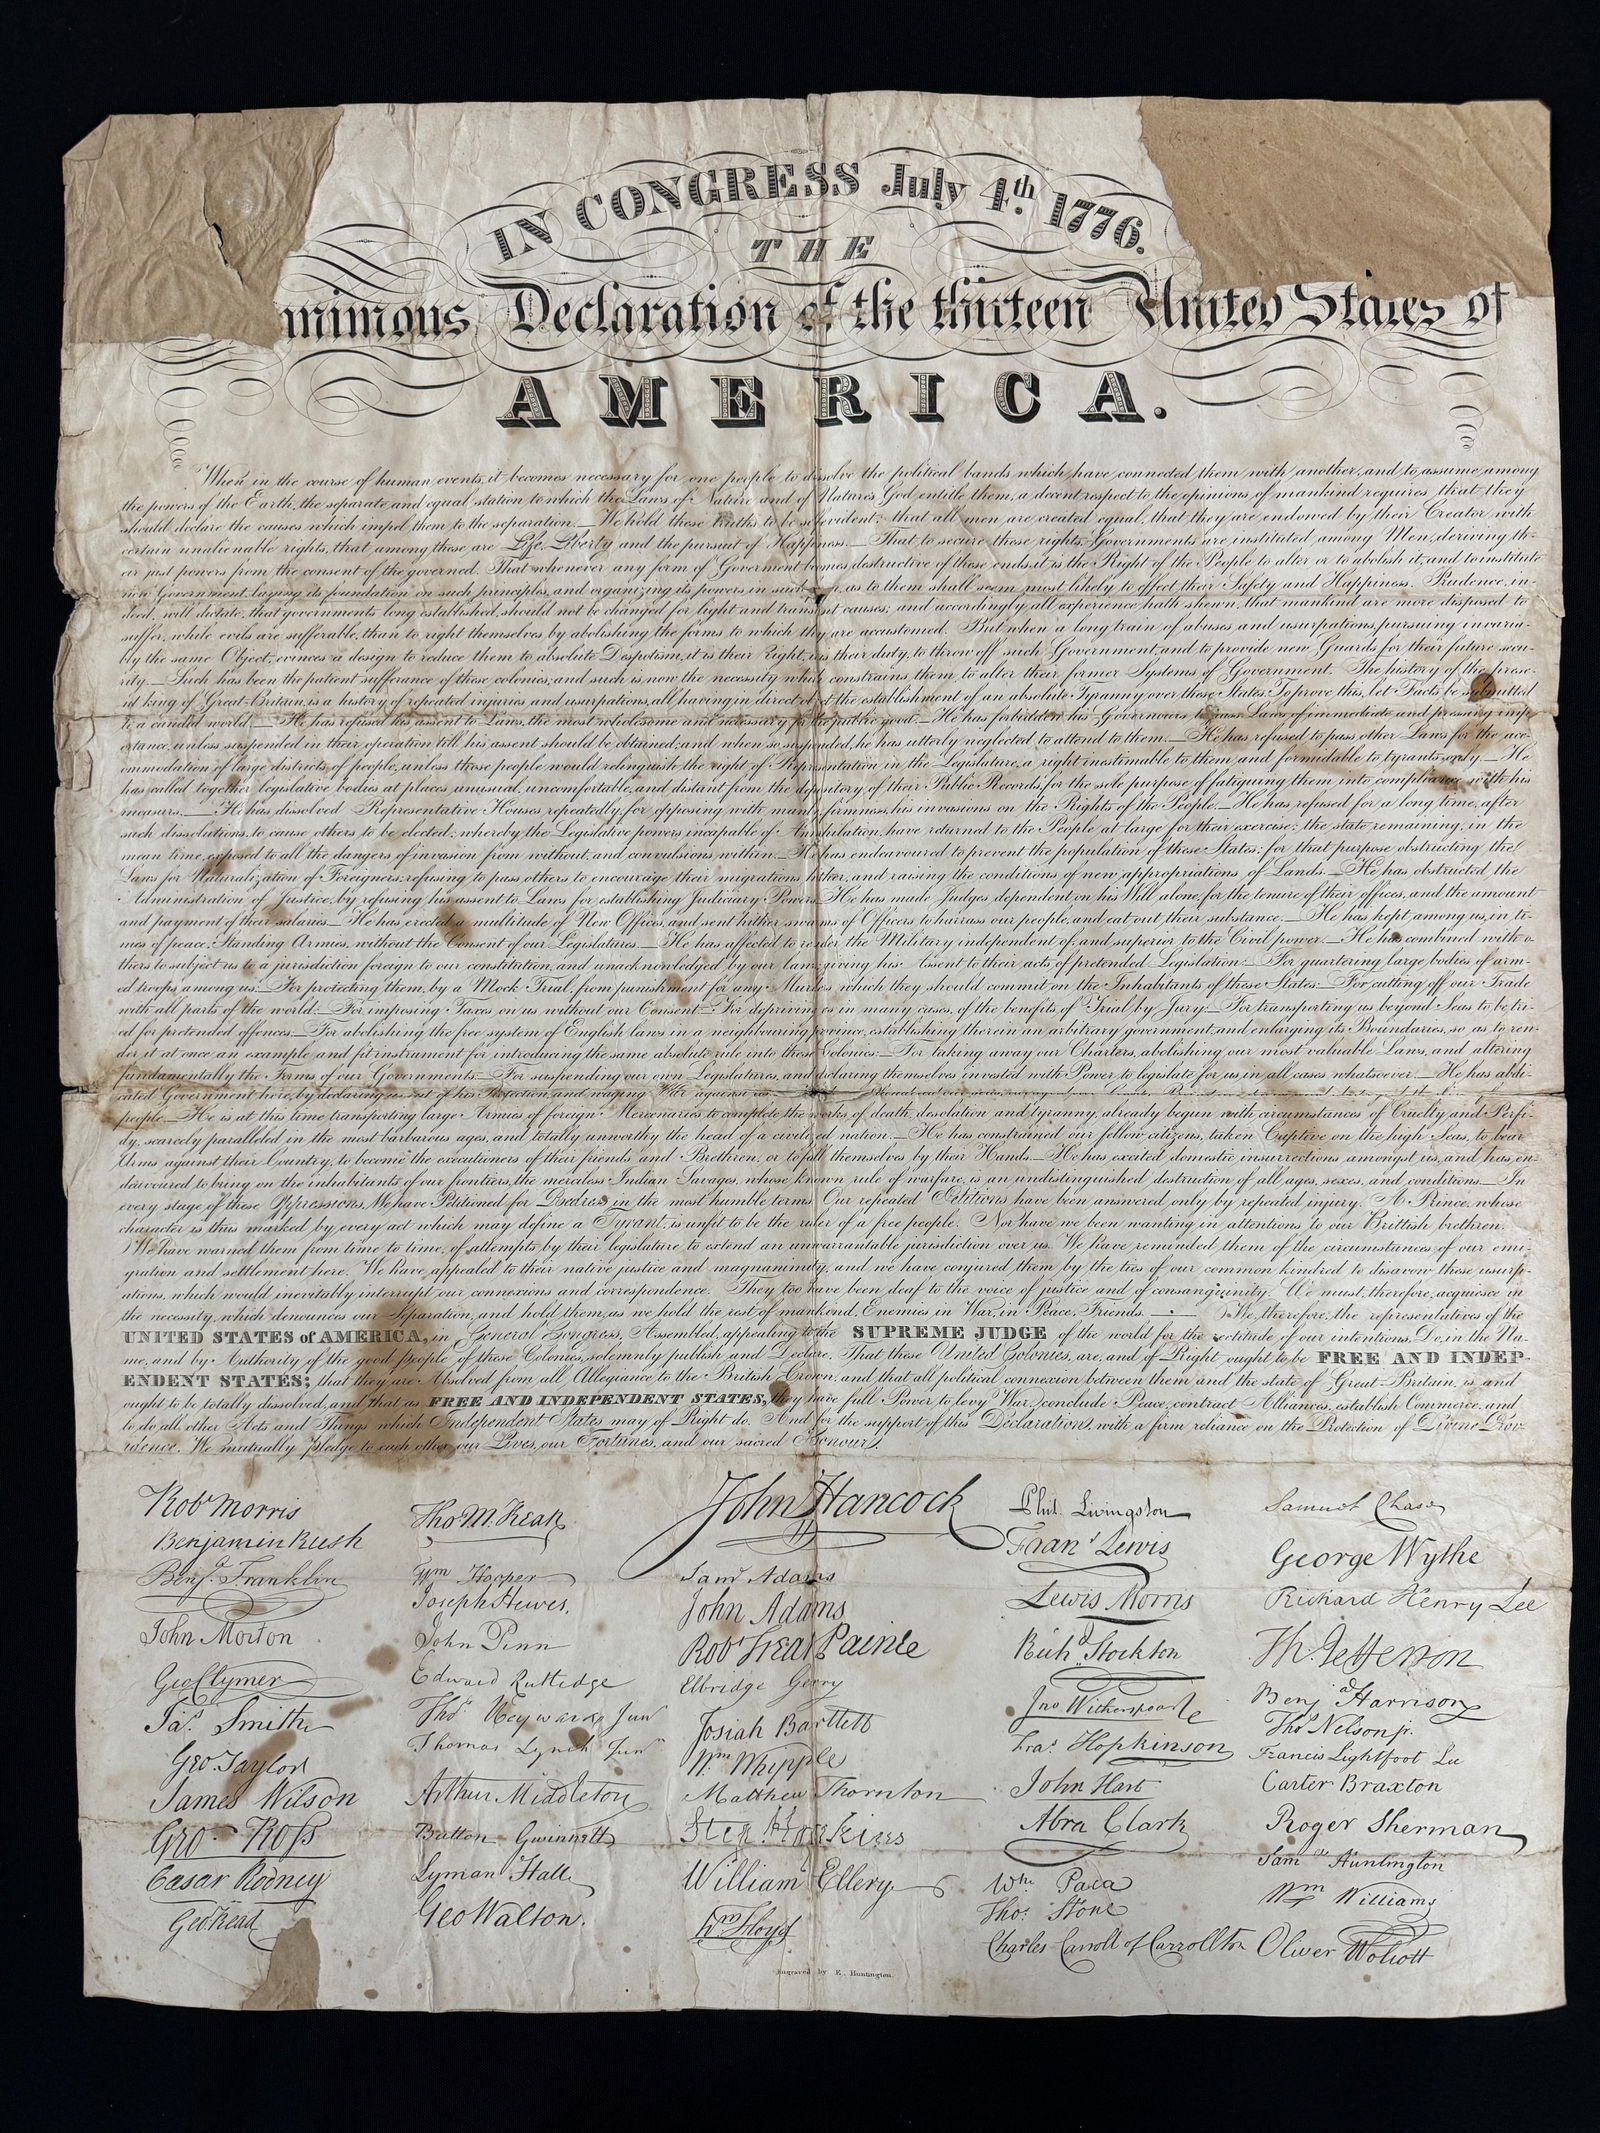 IN CONGRESS July 4th. 1776.
THE
nimous Declaration of the thirteen United States of
AMERICA.
When in the course of human events, it becomes necessary for one people to dissolve the political bands which have connected them with another, and to assume among
the powers of the Earth, the separate and equal station to which the Laws of Nature and of Natures God entitle them, a decent respect to the opinions of mankind requires that they
should declare the causes which impel them to the separation.— We hold these truths to be selfevident; that all men are created equal, that they are endowed by their Creator with
certain unalienable rights, that among these are Life, Liberty and the pursuit of Happiness.— That, to secure these rights, Governments are instituted among Men, deriving th-
eir just powers from the consent of the governed. That whenever any form of Goverment becomes destructive of these ends, it is the Right of the People to alter or to abolish it, and to institute
new Government, laying its foundation on such principles, and organizing its powers in such as to them shall seem most likely to effect their Safety and Happiness. Prudence, in-
deed, will dictate, that governments long established, should not be changed for light and causes; and accordingly all experience hath shewn, that mankind are more disposed to
suffer, while evils are sufferable, than to right themselves by abolishing the forms to which they are accustomed. But when a long train of abuses and usurpations, pursuing invaria-
bly the same Object, evinces a design to reduce them to absolute Despotism, it is their right, it is their duty, to throw off such Government, and to provide new Guards for their future secu-
rity.— Such has been the patient sufferance of these colonies; and such is now the necessity which constrains them, to alter their former Systems of Government. The history of the prese-
nt king of Great-Britain, is a history of repeated injuries and usurpations, all having in direct the establishment of an absolute Tyranny over these States. To prove this, let Facts be submitted
to a candid world.— He has refused his assent to Laws, the most wholesome and necessary for the public good.— He has forbidden his Governours to pass Laws of immediate and pressing imp-
ortance, unless suspended in their operation till his assent should be obtained; and when so suspended, he has utterly neglected to attend to them.— He has refused to pass other Laws for the acc-
ommodation of large districts of people, unless those people would relinquish the right of Representation in the Legislature, a right inestimable to them and formidable to tyrants only.— He
has called together legislative bodies at places unusual, uncomfortable, and distant from the depository of their Public Records, for the sole purpose of fatiguing them into compliance with his
measurs.— He has dissolved Representative Houses repeatedly, for opposing with manly firmness, his invasions on the Rights of the People.— He has refused for a long time, after
such dissolutions, to cause others to be elected; whereby the Legislative powers, incapable of Annihilation, have returned to the People at large for their exercise; the state remaining, in the
mean time, exposed to all the dangers of invasion from without, and convulsions within.— He has endeavoured to prevent the population of these States; for that purpose obstructing the
Laws for Naturalization of Foreigners; refusing to pass others to encourage their migrations hither, and raising the conditions of new appropriations of Lands.— He has obstructed the
Administration of Justice, by refusing his assent to Laws for establishing Judiciary Powers. He has made Judges dependent, on his Will alone, for the tenure of their offices, and the amount
and payment of their salaries.— He has erected a multitude of New Offices, and sent hither swarms of Officers to harrass our people, and eat out their substance.— He has kept among us, in ti-
mes of peace, Standing Armies, without the Consent of our Legislatures.— He has affected to render the Military independent of, and superior to the Civil power.— He has combined with o-
thers to subject us to a jurisdiction foreign to our constitution, and unacknowledged by our laws; giving his Assent to their acts of pretended Legislation:— For quartering large bodies of arm-
ed troops among us:— For protecting them, by a Mock Trial, from punishment for any Murders which they should commit on the Inhabitants of these States:— For cutting off our Trade
with all parts of the world:— For imposing Taxes on us without our Consent:— For depriving us in many cases, of the benefits of Trial by Jury:— For transporting us beyond Seas to be tri-
ed for pretended offences:— For abolishing the free system of English laws in a neighbouring province, establishing therein an arbitrary government, and enlarging its Boundaries, so as to ren-
der it at once an example and fit instrument for introducing the same absolute rule into these Colonies:— For taking away our Charters, abolishing our most valuable Laws, and altering
fundamentally the Forms of our Governments:— For suspending our own Legislatures, and declaring themselves invested with Power to legislate for us, in all cases whatsoever.— He has abdi-
cated Government here, by declaring us out of his Protection, and waging War against us.
people.— He is at this time transporting large Armies of foreign Mercenaries to complete the works of death, desolation and tyranny, already begun with circumstances of Cruelty and Perfi-
dy, scarcely paralleled in the most barbarous ages, and totally unworthy the head of a civilized nation.— He has constrained our fellow citizens, taken Captive on the high Seas, to bear
Arms against their Country, to become the executioners of their friends and Brethren, or to fall themselves by their Hands.— He has excited domestic insurrections amongst us, and has en-
deavoured to bring on the inhabitants of our frontiers, the merciless Indian Savages, whose known rule of warfare, is an undistinguished destruction of all ages, sexes, and conditions.— In
every stage of these Oppressions, We have Petitioned for Redress in the most humble terms. Our repeated Petitions have been answered only by repeated injury. A Prince, whose
character is thus marked by every act which may define a Tyrant, is unfit to be the ruler of a free people. Nor have we been wanting in attentions to our Brittish brethren.
We have warned them from time to time, of attempts by their legislature to extend an unwarrantable jurisdiction over us. We have reminded them of the circumstances of our emi-
gration and settlement here. We have appealed to their native justice and magnanimity, and we have conjured them by the ties of our common kindred to disavow these usurp-
ations, which would inevitably interrupt our connexions and correspondence. They too have been deaf to the voice of justice and of consanguinity. We must, therefore, acquiesce in
the necessity, which denounces our Separation, and hold them, as we hold the rest of mankind, Enemies in War, in Peace, Friends.— We, therefore, the representatives of the
UNITED STATES of AMERICA, in General Congress, Assembled, appealing to the SUPREME JUDGE of the world for the rectitude of our intentions, Do, in the Na-
me, and by Authority of the good people of these Colonies, solemnly publish and Declare, That these United Colonies, are, and of Right ought to be FREE AND INDEP-
ENDENT STATES; that they are Absolved from all Allegiance to the British Crown, and that all political connexion between them and the state of Great-Britain, is and
ought to be totally dissolved; and that as FREE AND INDEPENDENT STATES, they have full Power to levy War, conclude Peace, contract Alliances, establish Commerce, and
to do all other Acts and Things which Independent States may of Right do. And for the support of this Declaration, with a firm reliance on the Protection of Divine Prov-
idence, We mutually pledge to each other our Lives, our Fortunes, and our sacred Honour.
Robt Morris
Benjamin Rush
Benja. Franklin
John Morton
Geo Clymer
Jas. Smith
Geo. Taylor
James Wilson
Geo. Ross
Cæsar Rodney
Geo Read
Tho M. Kean
Wm Hooper
Joseph Hewes,
John Penn
Edward Rutledge
Thos Heyward Junr
Thomas Lynch Junr
Arthur Middleton
Button Gwinnett
Lyman Hall
Geo Walton.
John Hancock
Saml Adams
John Adams
Robt Treat Paine
Elbridge Gerry
Josiah Bartlett
Wm Whipple
Matthew Thornton
Step Hopkins
William Ellery
Wm Floyd
Phil. Livingston
Frans Lewis
Lewis Morris
Richd Stockton
Jno Witherspoon
Fras. Hopkinson
John Hart
Abra Clark
Wm Paca
Thos. Stone
Charles Carroll of Carrollton
Samuel Chase
George Wythe
Richard Henry Lee
Th. Jefferson
Benja Harrison
Thos Nelson jr.
Francis Lightfoot Lee
Carter Braxton
Roger Sherman
Saml Huntington
Wm Williams
Oliver Wolcott
Engraved by E. Huntington.